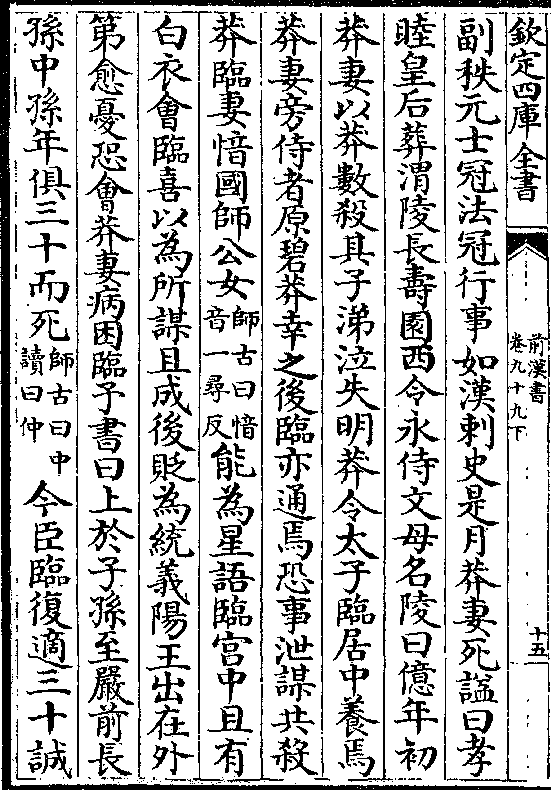 欽定四庫全書
前漢書
卷九十九下
十五
副秩元士冠法冠行事如漢刺史是月莽妻死諡曰孝
睦皇后葬渭陵長壽園西令永侍文母名陵曰億年初
莽妻以莽數殺其子涕泣失明莽令太子臨居中養焉
莽妻旁侍者原碧莽幸之後臨亦通焉恐事泄謀共殺
莽臨妻愔國師公女師古曰愔音一尋反能為星語臨宫中且有
白衣會臨喜以為所謀且成後貶為統義陽王出在外
第愈憂恐會莽妻病困臨予書曰上於子孫至嚴前長
孫中孫年俱三十而死師古曰中讀曰仲今臣臨復適三十誠